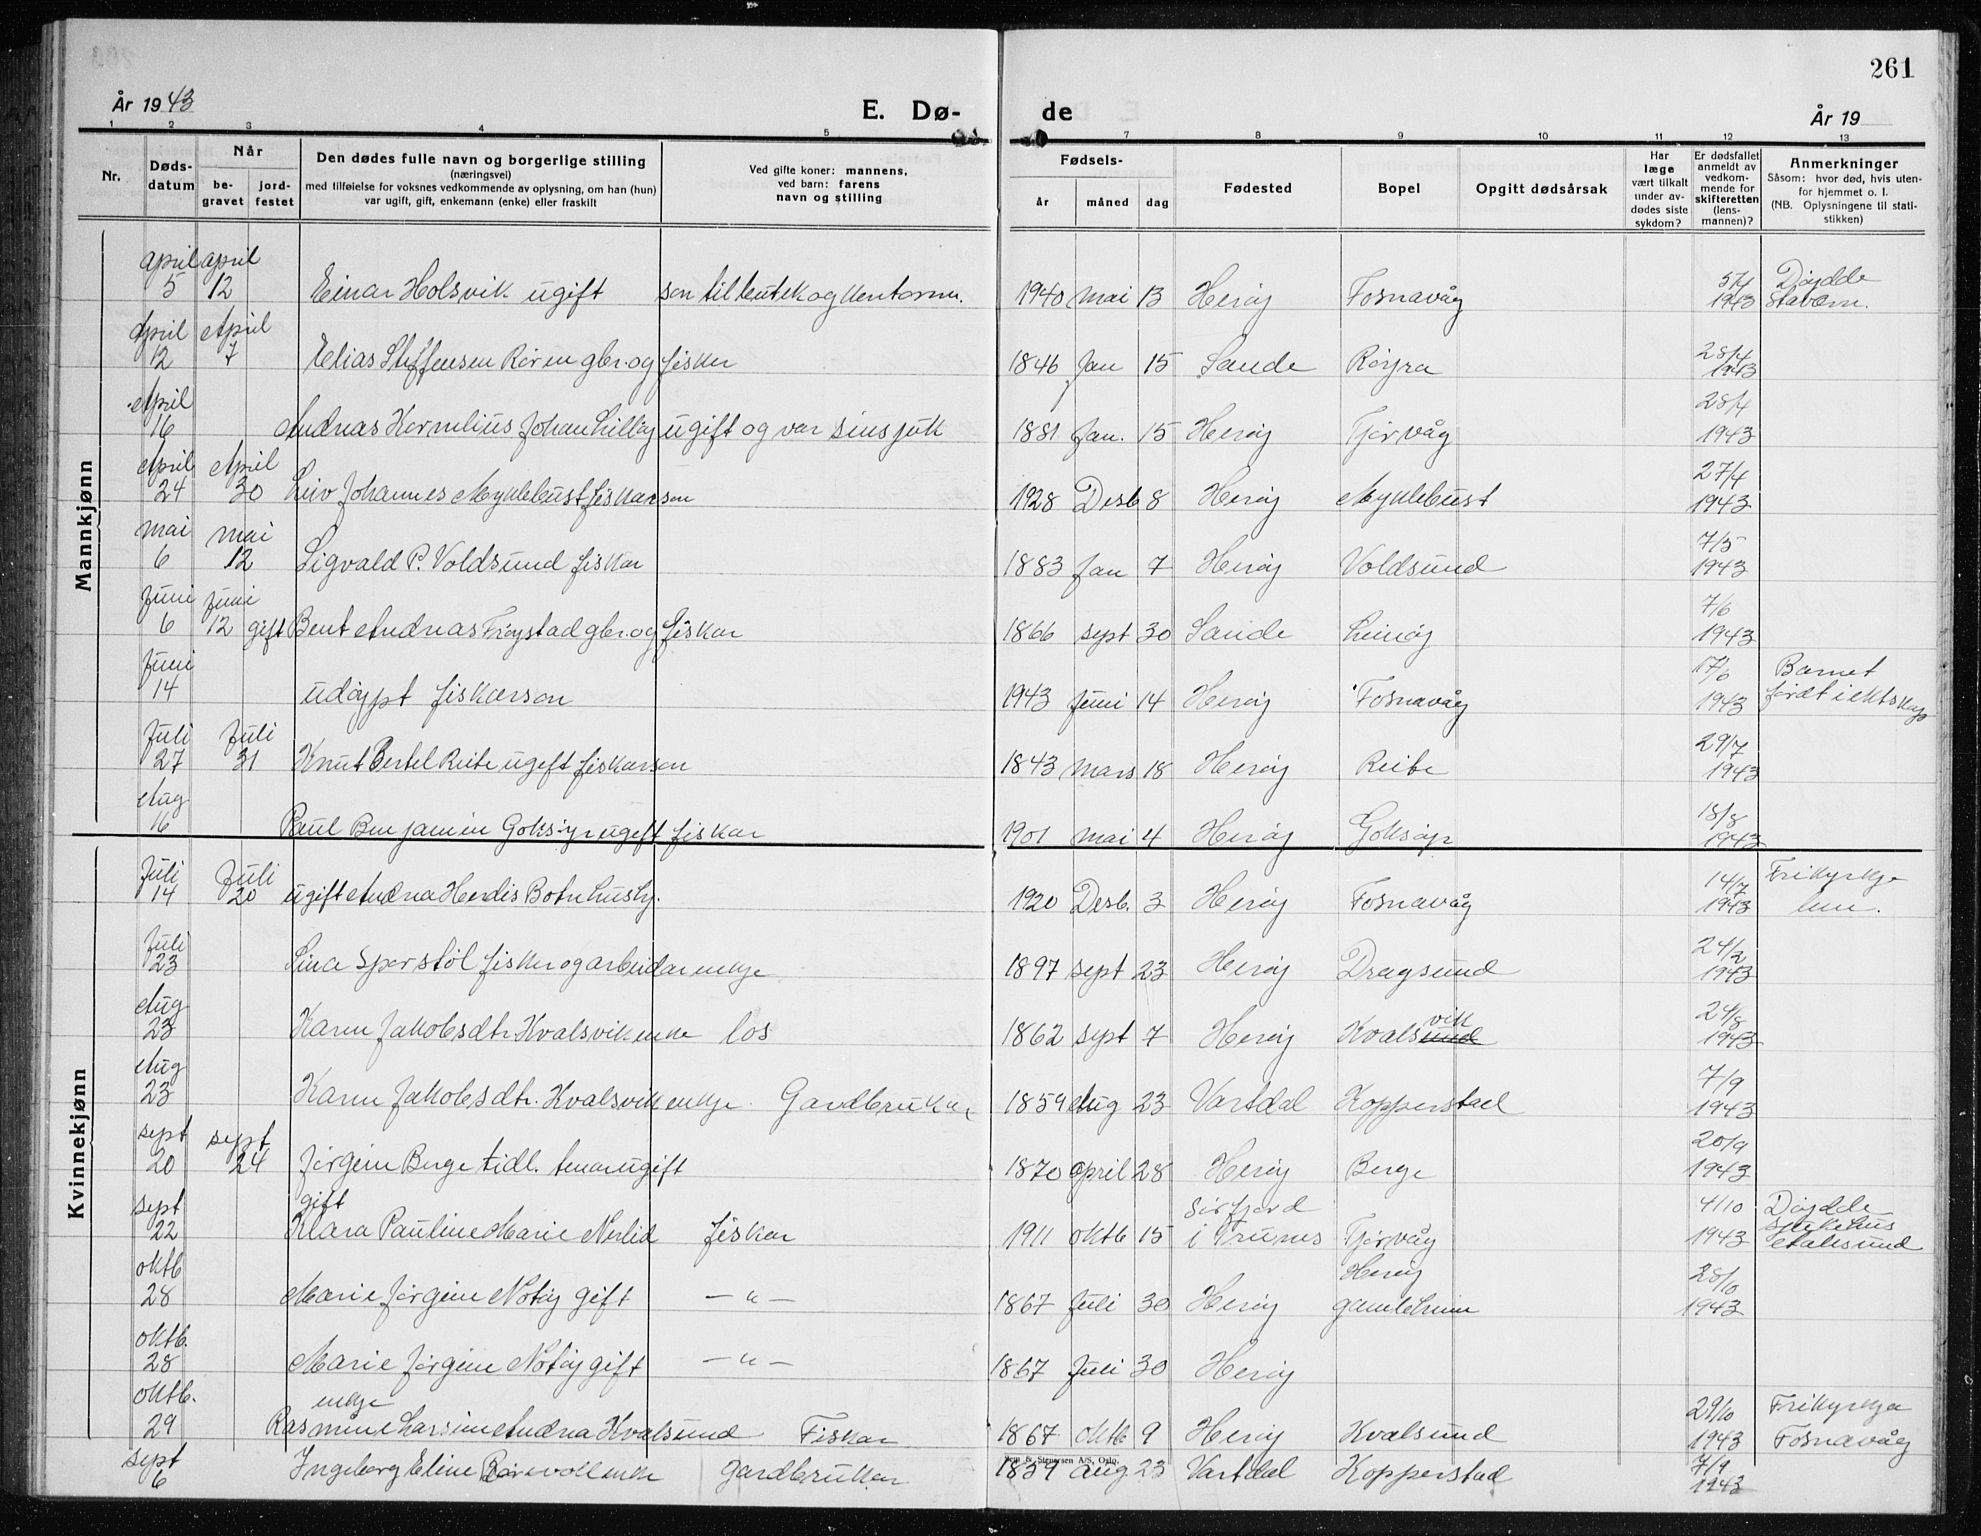 261
År 1943
E. Dø-
de
År 19
1 2 3 4 5
7 8 9 10 11 12 13
Nr.
Døds-
datum
Når
be-
gravet
jord-
festet
Den dødes fulle navn og borgerlige stilling
(næringsvei)
med tilføielse for voksnes vedkommende av oplysning, om han (hun)
var ugift, gift, enkemann (enke) eller fraskilt
Ved gifte koner: mannens,
ved barn: farens
navn og stilling
Fødsels-
år måned dag
Fødested
Bopel
Opgitt dødsårsak
Har
læge
vært tilkalt
under av-
dødes siste
sykdom?
Er dødsfallet
anmeldt av
vedkom-
mende for
skifteretten
(lens-
mannen)?
Anmerkninger
Såsom: hvor død, hvis uten-
for hjemmet o. l.
(NB. Oplysningene til stati-
stikken)
Mannkjønn
april april 5/4 Døydde
5 12 Einar Holsvik ugift son til 1940 mai 13 Herøy Fosnavåg 1943 Stavern.
April April 28/4
12 7 Elias Steffensen Røren gbr. og fisker 1846 Jan 15 Sande Røyra 1943
April 28/4
16 Andreas Kornelius Johan Lilløy ugift og var sinsjuk 1881 Jan. 15 Herøy Tjørvåg 1943
April April 27/4
24 30 Leiv Johannes Myklebust fiskarson 1928 Desb 8 Herøy Myklebust 1943
mai mai 7/5
6 12 Sigvald P. Voldsund fiskar 1883 Jan 7 Herøy Voldsund 1943
Juni Juni 7/6
6 12 gift Bent Andreas Frøystad gbr. og fiskar 1866 sept 30 Sande Leinøy 1943
Juni 17/6 Barnet
14 udøypt fiskarson 1943 Juni 14 Herøy Fosnavåg 1943 født i ektskap
Juli Juli 29/7
27 31 Knut Bertel Reite ugift fiskarson 1843 mars 18 Herøy Reite 1943
Aug 18/8
16 Paul Benjamin Goksøyr ugift fiskar 1901 mai 4 Herøy Goksøyr 1943
Kvinnekjønn
Juli Juli 14/7 Frikyrkje
14 20 ugift Andrea Herdis Botn hush. 1920 Desb. 3 Herøy Fosnavåg 1943
Juli
23 Lina Sporstøl fisker og arbeidar enkje 1897 sept 23 Herøy Dragsund 1943
Aug vik 24/8
23 Karen Jakobsdtr. Kvalsvik enke los 1862 sept 7 Herøy Kvalsund 1943
Aug 7/9
23 Karen Jakobsdtr. Kvalsvik enkje. Gardbrukar 1859 Aug 23 Vartdal Kopperstad 1943
sept sept 20/9
20 24 Jørgine Berge tidl. tenar ugift 1870 april 28 Herøy Berge 1943
sept gift Sørfjord 4/10 Døydde
22 Klara Pauline Marie Nerlid fiskar 1911 oktb 15 i Tjørvåg 1943 sjukehus
Aalesund
oktb Herøy 28/10
28 Marie Jørgine Notøy gift — " — 1867 Juli 30 Herøy gamleheim 1943
oktb.
28 Marie Jørgine Notøy gift — " — 1867 Juli 30 Herøy
oktb. enkje 29/10 Frikyrkja
29 Rasmine Larsine Andrea Kvalsund Fiskar 1867 oktb 9 Herøy Kvalsund 1943 Fosnavåg
Sem & Stenersen A/S, Oslo.
sept 7/9
6 Ingeborg Eline enke gardbrukar 1859 aug 23 Vartdal Kopperstad 1943